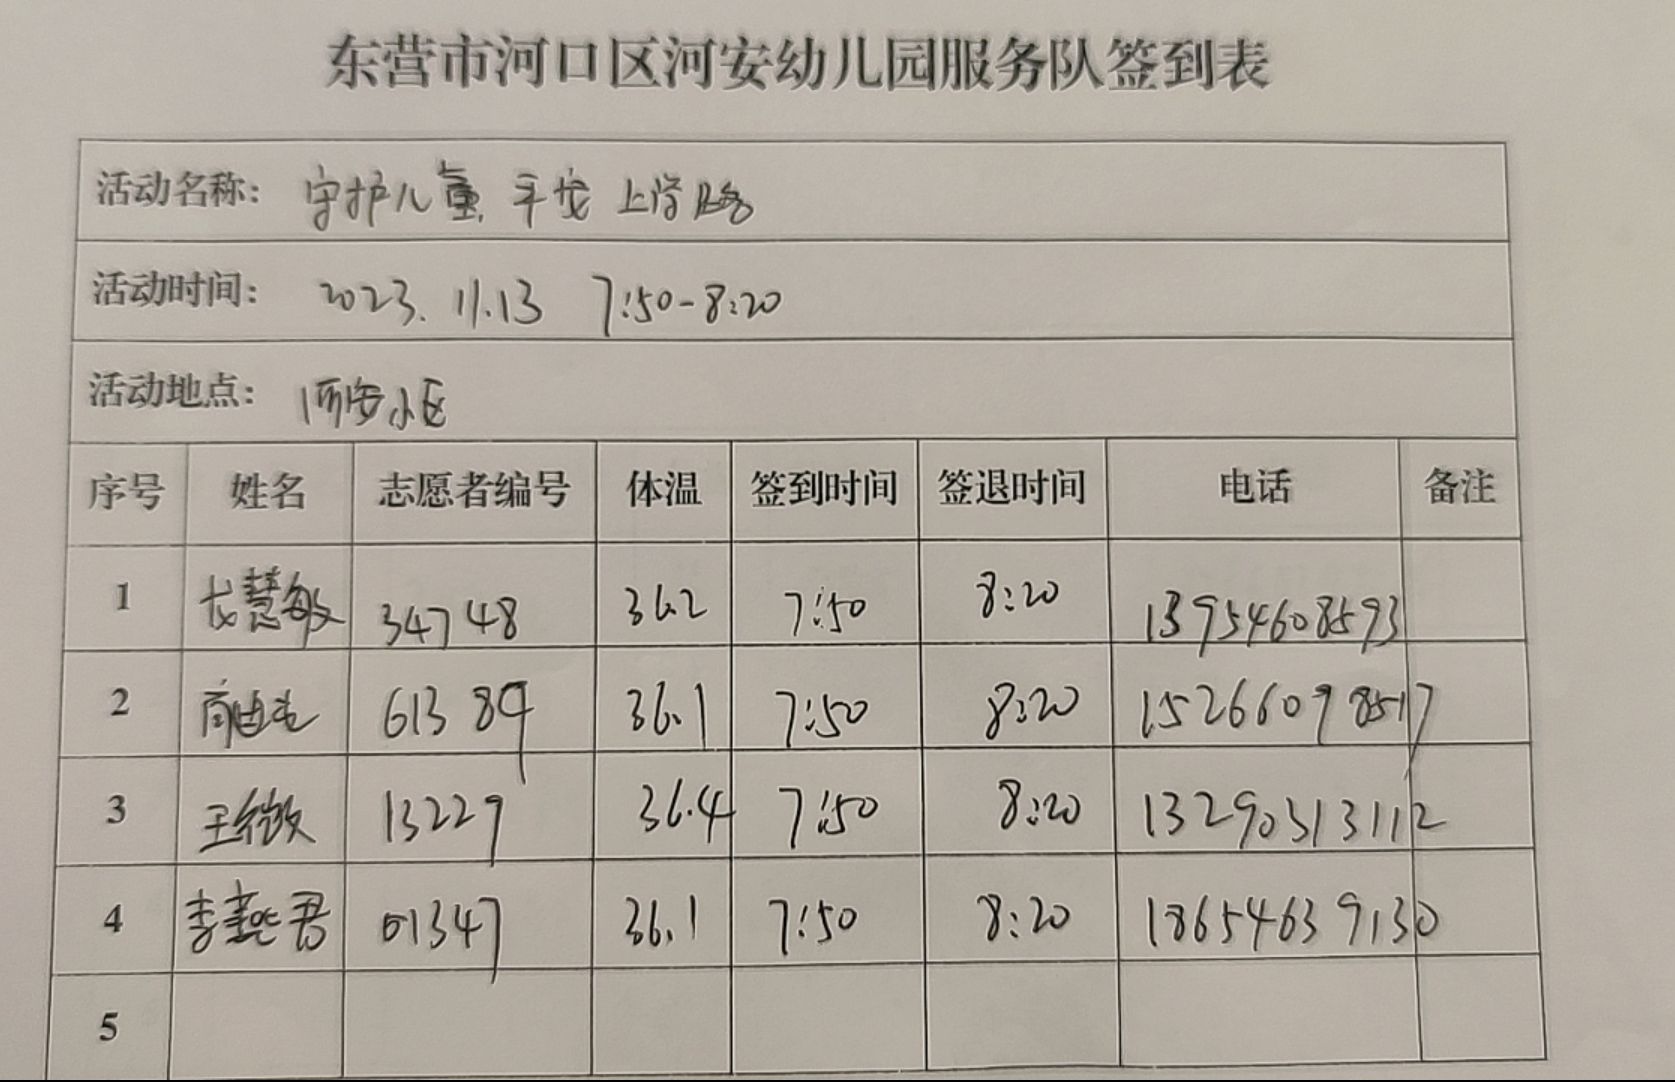 东营市河口区河安幼儿园服务队签到表
活动名称: 守护儿童 平安 上学路
活动时间: 2023.11.13 7:50-8:20
活动地点: 河安小区
序号 姓名 志愿者编号 体温 签到时间 签退时间 电话 备注
1 慧敏 34748 36.2 7:50 8:20 13954608593
2 61384 36.1 7:50 8:20 15266098517
3 王微 13229 36.4 7:50 8:20 13290313112
4 李燕君 01347 36.1 7:50 8:20 18654639130
5